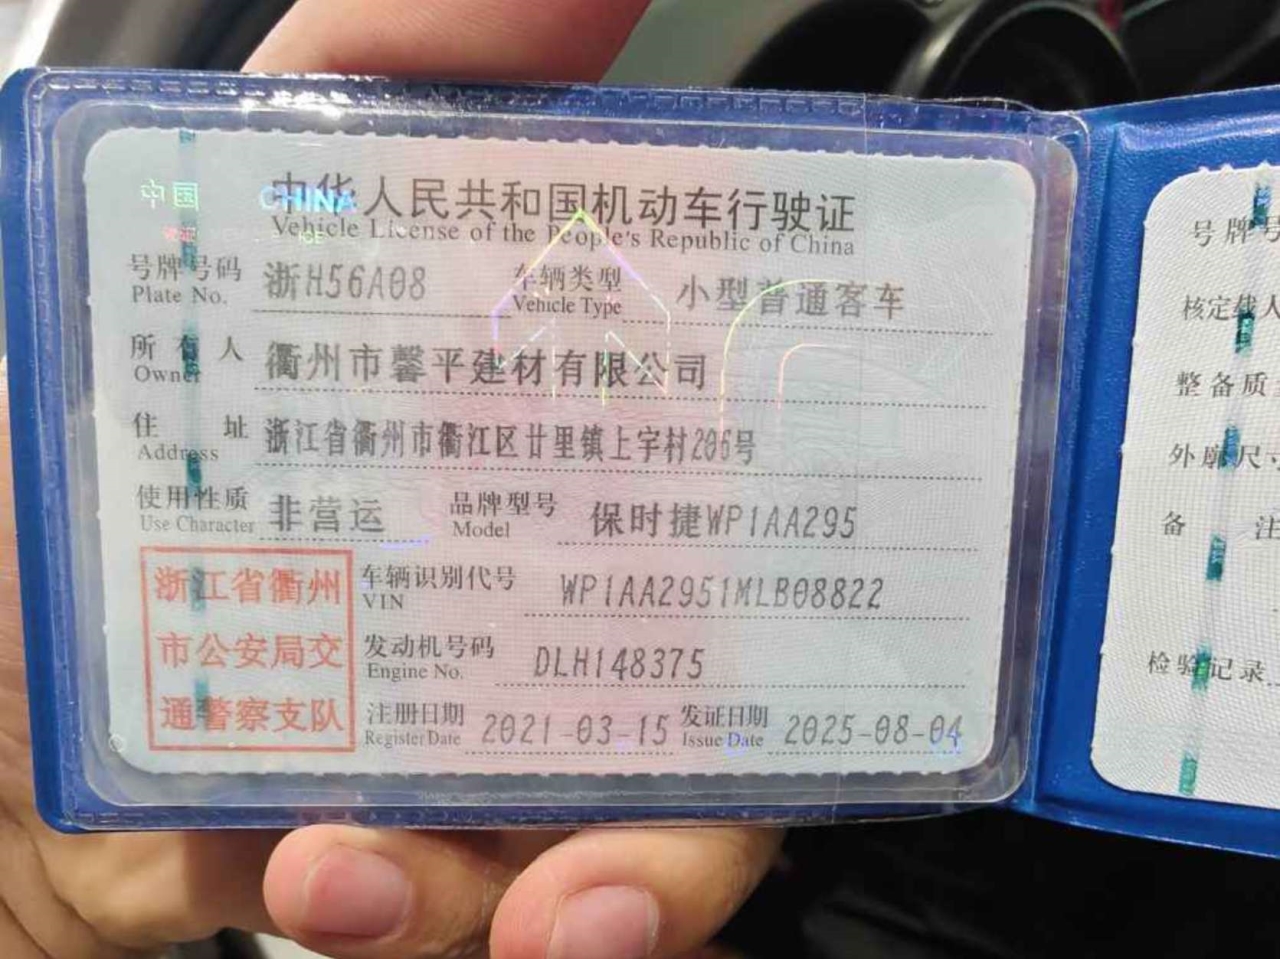 中国 CHINA
中华人民共和国机动车行驶证
Vehicle License of the People's Republic of China
号牌号码 浙H56A08 车辆类型 小型普通客车
Plate No. Vehicle Type
所有人 衢州市馨平建材有限公司
Owner
住址 浙江省衢州市衢江区廿里镇上宇村206号
Address
使用性质 非营运 品牌型号 保时捷WP1AA295
Use Character Model
浙江省衢州
市公安局交
通警察支队
车辆识别代号 WP1AA2951MLB08822
VIN
发动机号码 DLH148375
Engine No.
注册日期 2021-03-15 发证日期 2025-08-04
Register Date Issue Date
号牌号
核定载人
整备质
外廓尺寸
备 注
检验记录